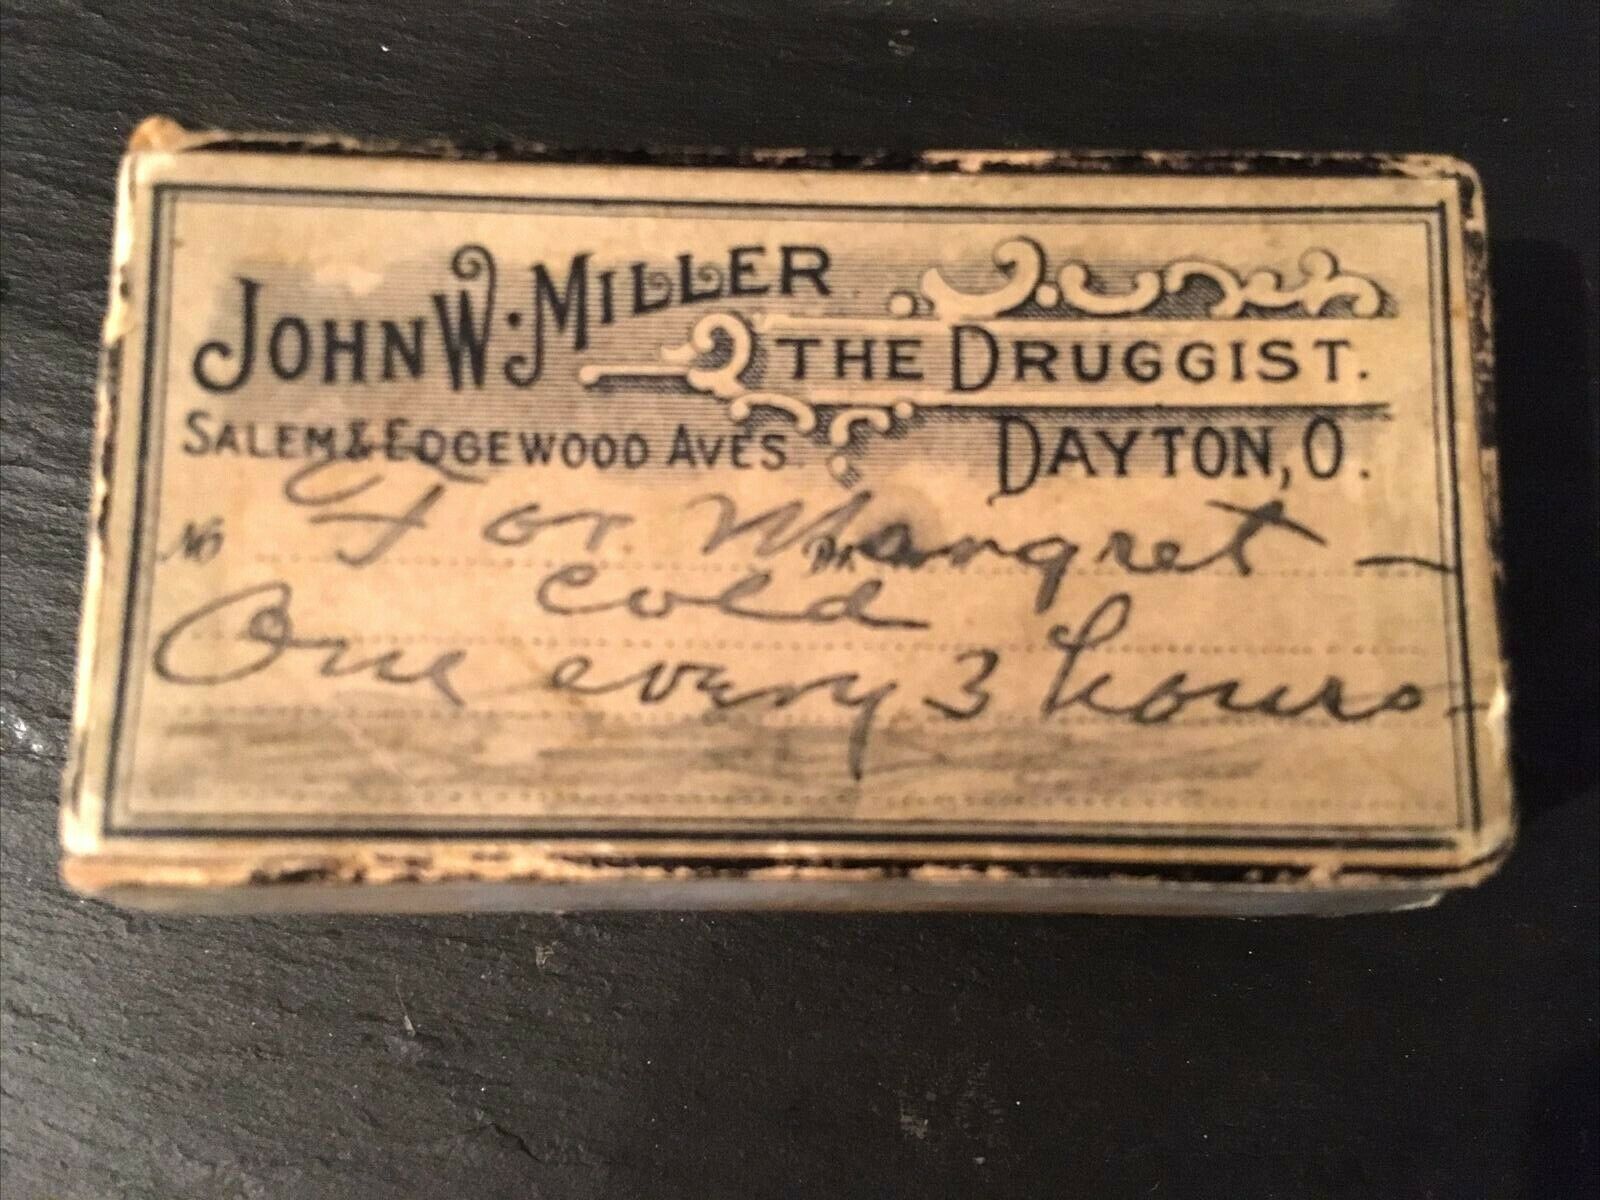 JOHN W. MILLER
THE DRUGGIST.
SALEM & EDGEWOOD AVES. DAYTON, O.
No For Margret -
DR.
cold
One every 3 hours -